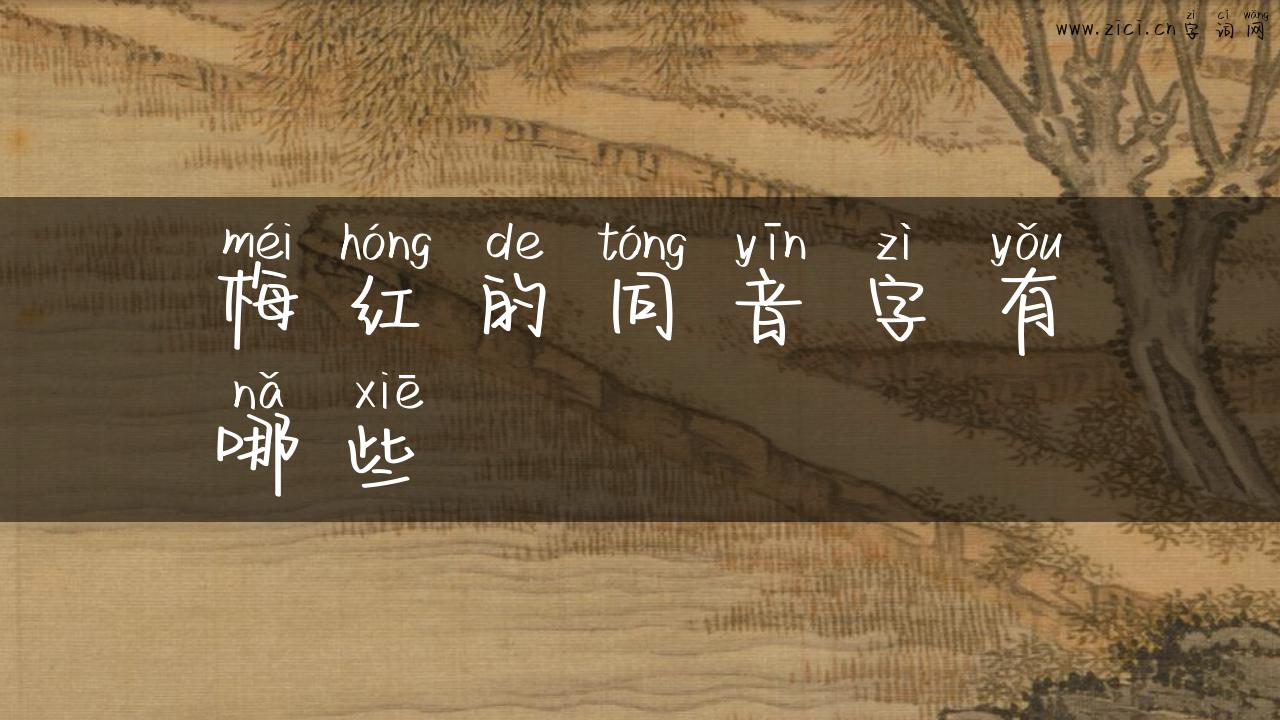 zì cí wǎng
www.zici.cn字词网
méi hóng de tóng yīn zì yǒu
梅红的同音字有
nǎ xiē
哪些